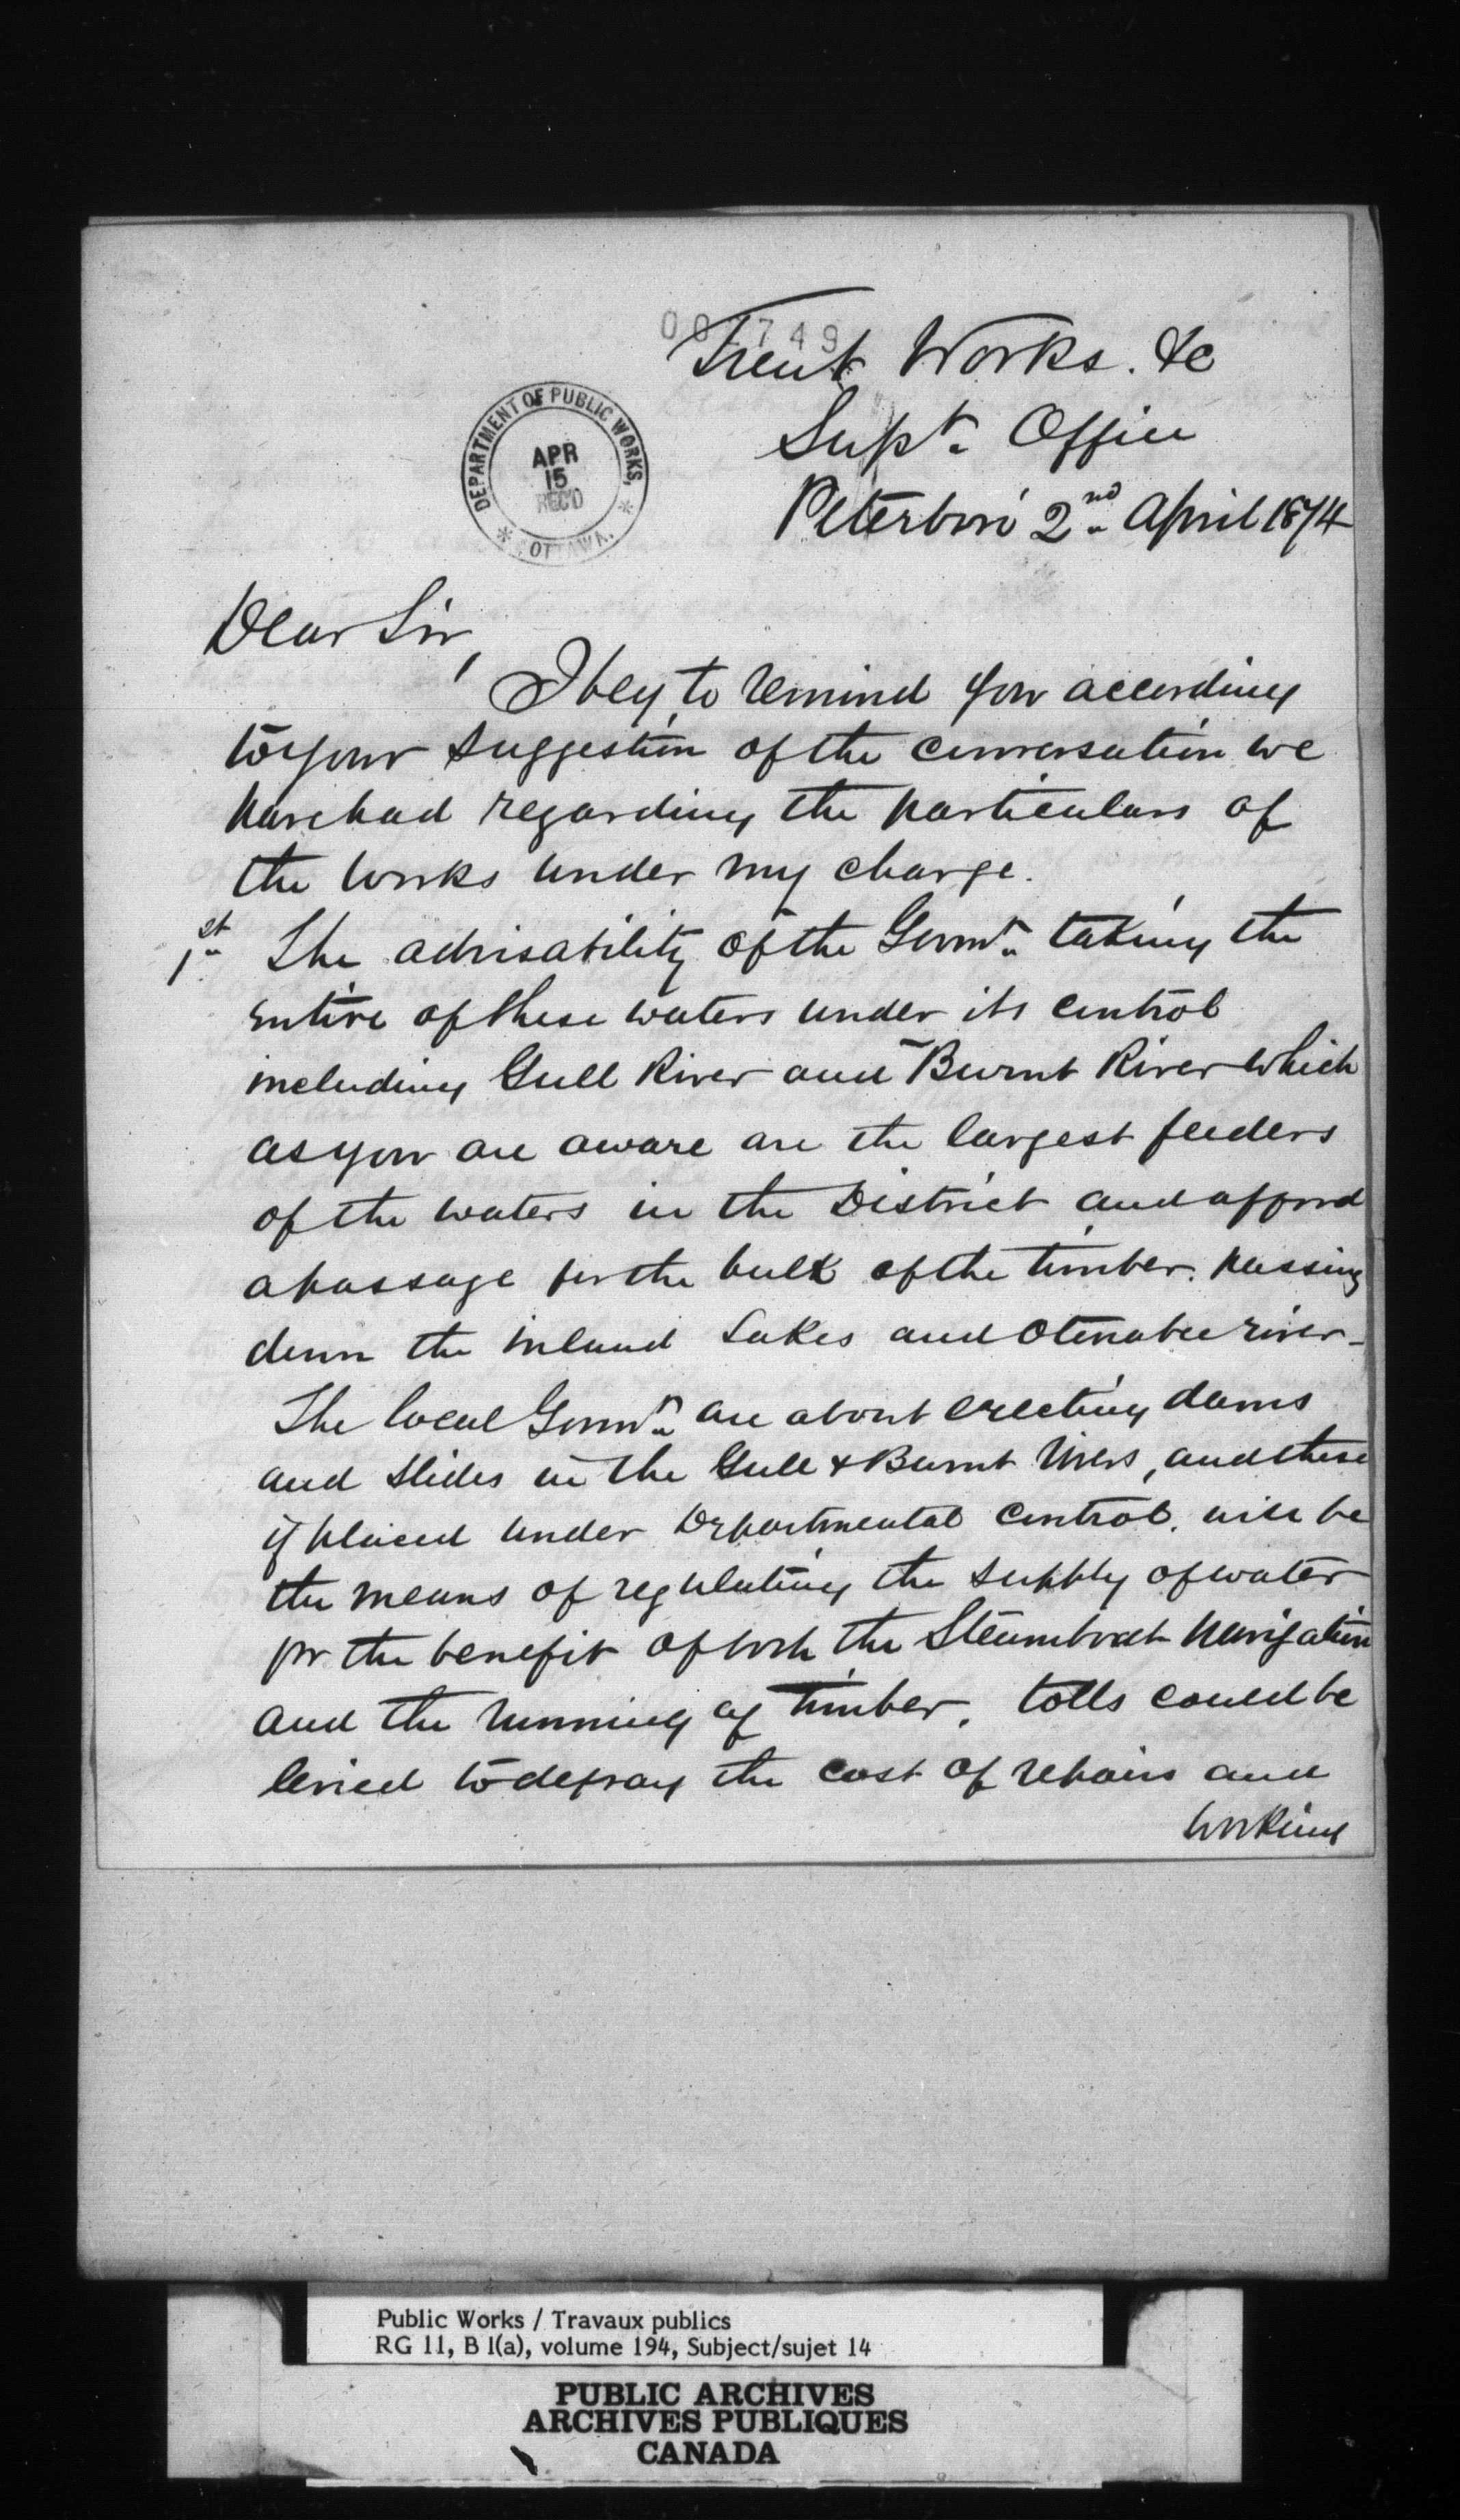 Trent Works. &c
Supt. Office
Peterboro' 2nd April 1874
DEPARTMENT OF PUBLIC WORKS,
APR
15
REC'D
OTTAWA.
Dear Sir,
I beg to remind you according
to your suggestion of the conversation we
have had regarding the particulars of
the works under my charge.
1st The advisability of the Govmt. taking the
entire of these waters under its control
including Gull River and Burnt River which
as you are aware are the largest feeders
of the waters in the District and afford
a passage for the bulk of the timber. passing
down the inland Lakes and Otonabee river-
The local Govmt. are about erecting dams
and slides in the Gull & Burnt rivers, and these
if placed under Departmental control. will be
the means of regulating the supply of water
for the benefit of both the Steamboat navigation
and the running of timber. tolls could be
levied to defray the cost of repairs and
working
Public Works / Travaux publics
RG 11, B 1(a), volume 194, Subject/sujet 14
PUBLIC ARCHIVES
ARCHIVES PUBLIQUES
CANADA